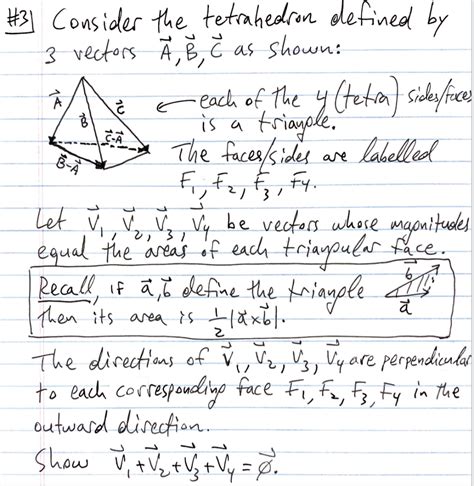 #3] Consider the tetrahedron defined by
3 vectors A⃗, B⃗, C⃗ as shown:
A⃗ B⃗ C⃗ C⃗-A⃗ B⃗-A⃗
← each of the 4 (tetra) sides/faces
is a triangle.
The faces/sides are labelled
F₁, F₂, F₃, F₄.
Let V⃗₁, V⃗₂, V⃗₃, V⃗₄ be vectors whose magnitudes
equal the areas of each triangular face.
Recall, if a⃗, b⃗ define the triangle b⃗ a⃗
then its area is ½|a⃗×b⃗|.
The directions of V⃗₁, V⃗₂, V⃗₃, V⃗₄ are perpendicular
to each corresponding face F₁, F₂, F₃, F₄ in the
outward direction.
Show V⃗₁+V⃗₂+V⃗₃+V⃗₄ = 0⃗.